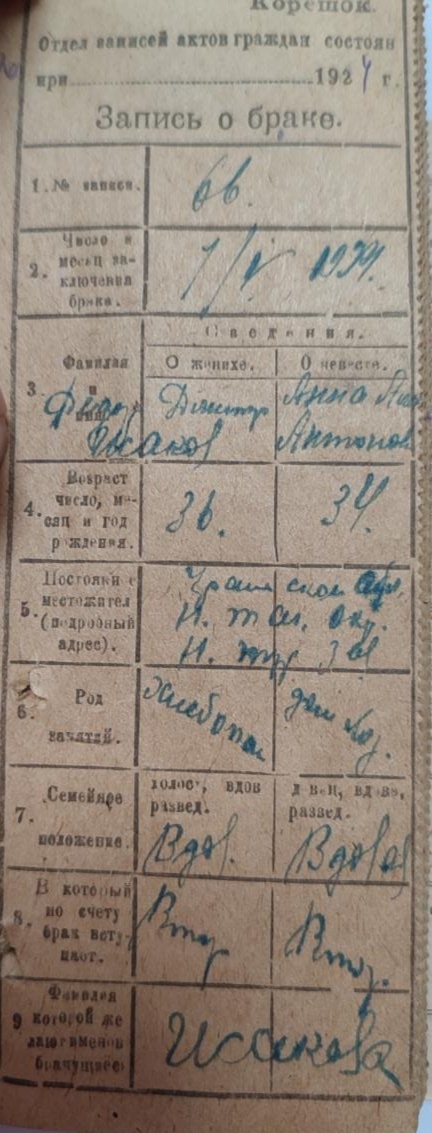 Корешок.
Отдел записей актов граждан состоян
при 1924 г.
Запись о браке.
1. № записи.
2. Число и месяц заключения брака.
1/V 1924.
Сведения.
О женихе. О невесте.
3. Фамилия и
Дмитр Анна
Исаков Антонов
4. Возраст число, месяц и год рождения.
36. 34.
5. Постоянн е местожител (подробный адрес).
Н.
Н.
6. Род занятий.
Хлебопа дом хоз.
7. Семейное положение.
холост, вдов развед.
девиц, вдова, развед.
Вдов. Вдова
8. В который по счету брак вступает.
Втор Втор.
9 Фамилия которой желают именов брачущиес
Исакова